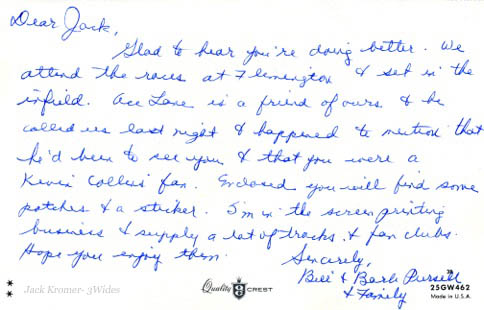 Dear Jack,
Glad to hear you're doing better. We
attend the races at Flemington & set in the
infield. Ace Lane is a friend of ours & he
called us last night & happened to mention that
he'd been to see you & that you were a
Kevin Collins' fan. Enclosed you will find some
patches & a sticker. I'm in the screen printing
business & supply a lot of tracks & fan clubs.
Hope you enjoy them.
Sincerely,
Bill & Barb Pursell
& Family
Jack Kromer- 3Wides
Quality CREST
25GW462
Made in U.S.A.